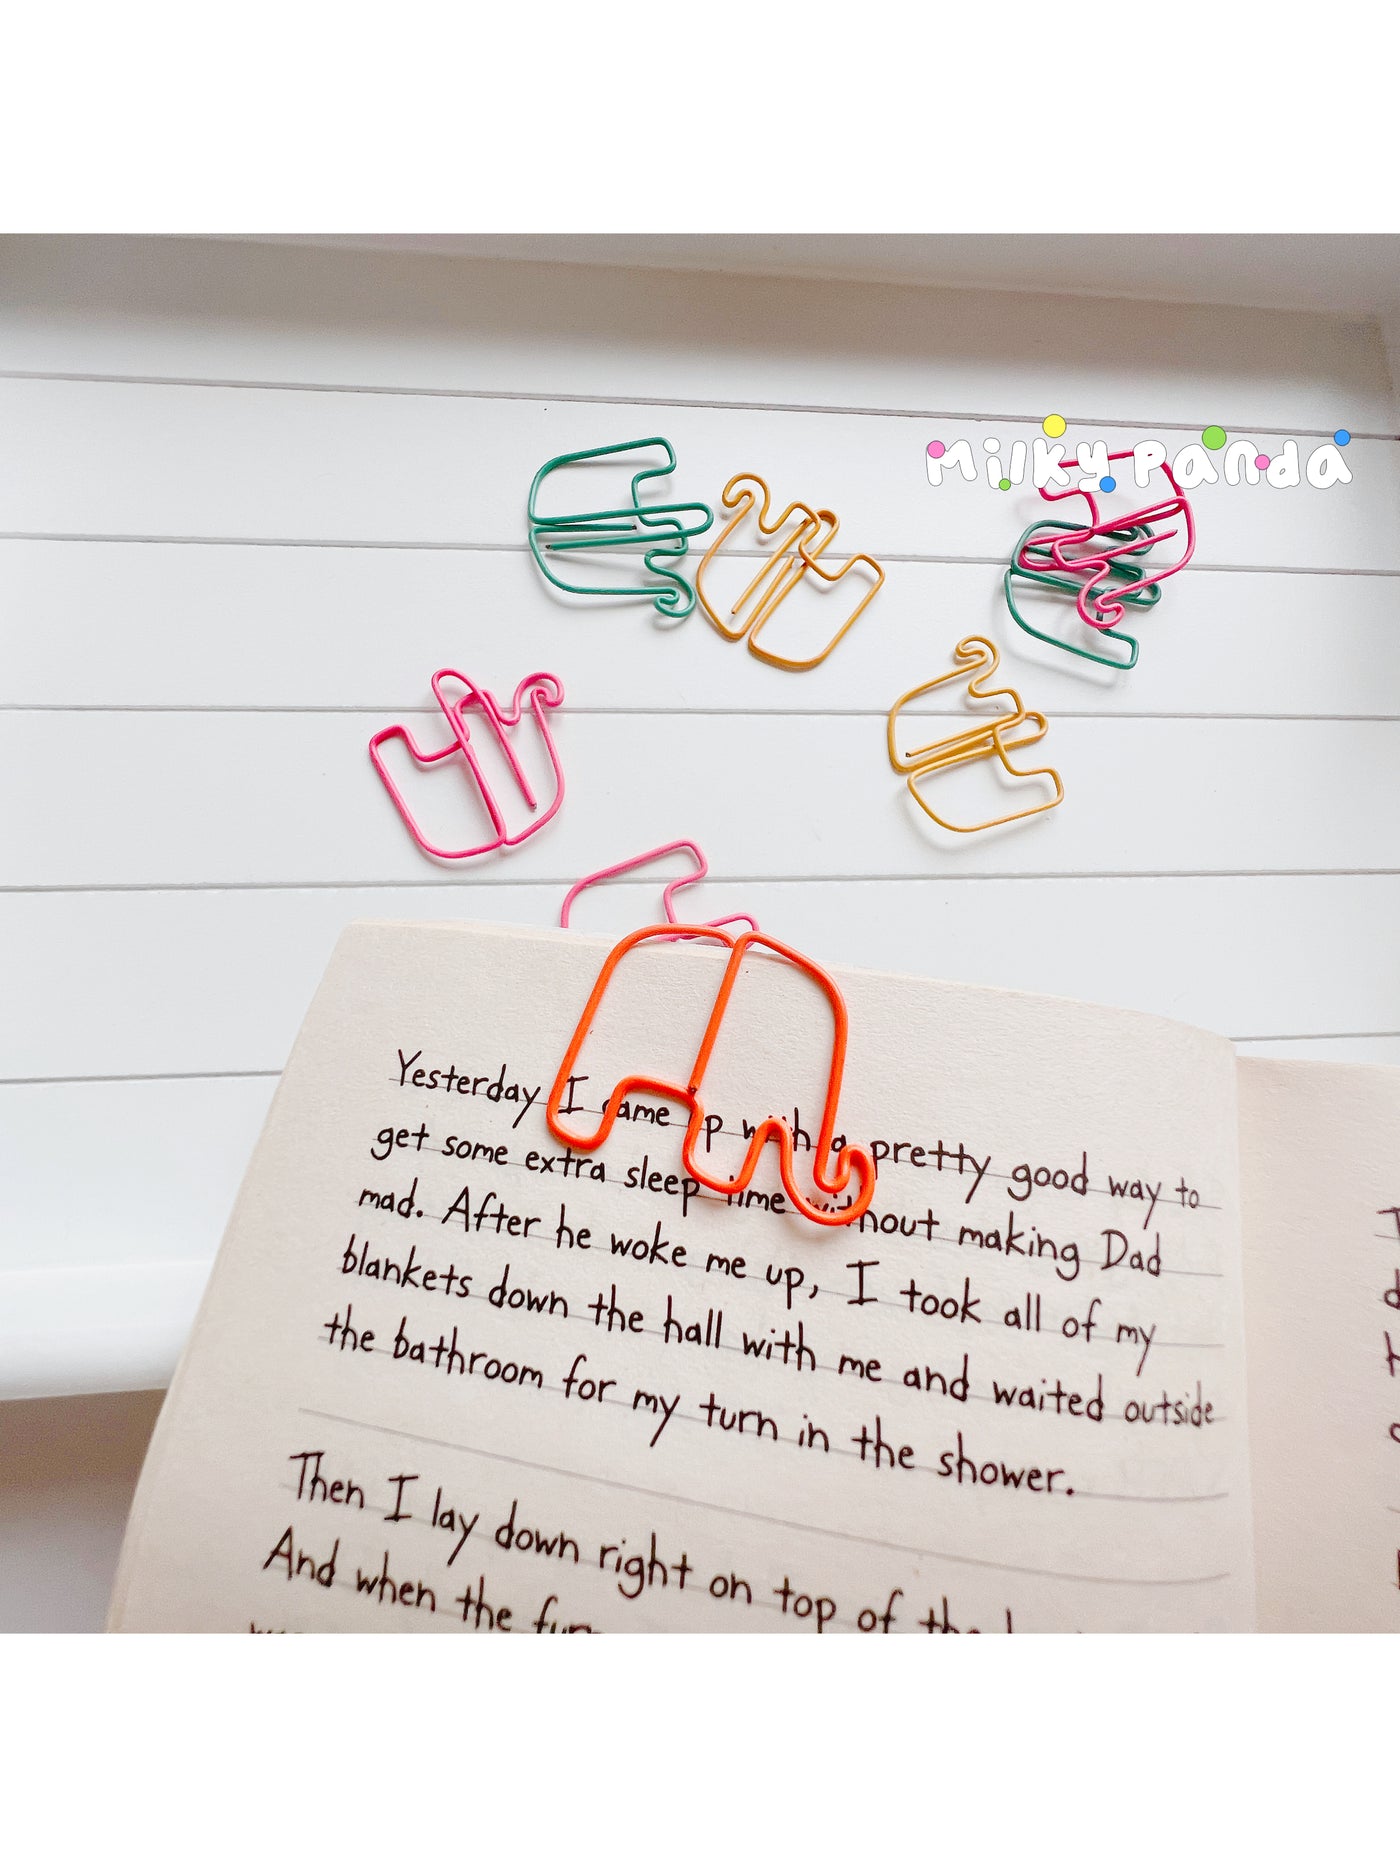 Milky Panda
Yesterday I came up with a pretty good way to
get some extra sleep time without making Dad
mad. After he woke me up, I took all of my
blankets down the hall with me and waited outside
the bathroom for my turn in the shower.
Then I lay down right on top of the
And when the